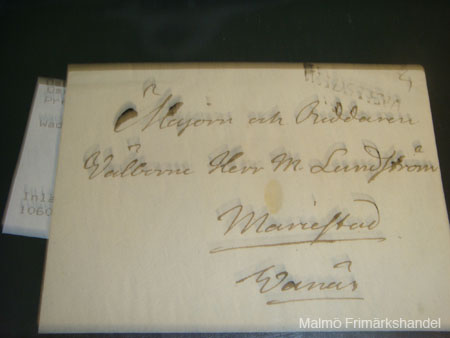 Majorn och Riddaren
Välborne Herr M. Lundström
Mariestad
Wanäs
Inla
1060
Malmö Frimärkshandel